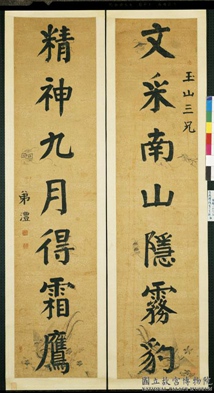 玉山三兄
文采南山隱霧豹
精神九月得霜鷹
弟澧
國立故宮博物院